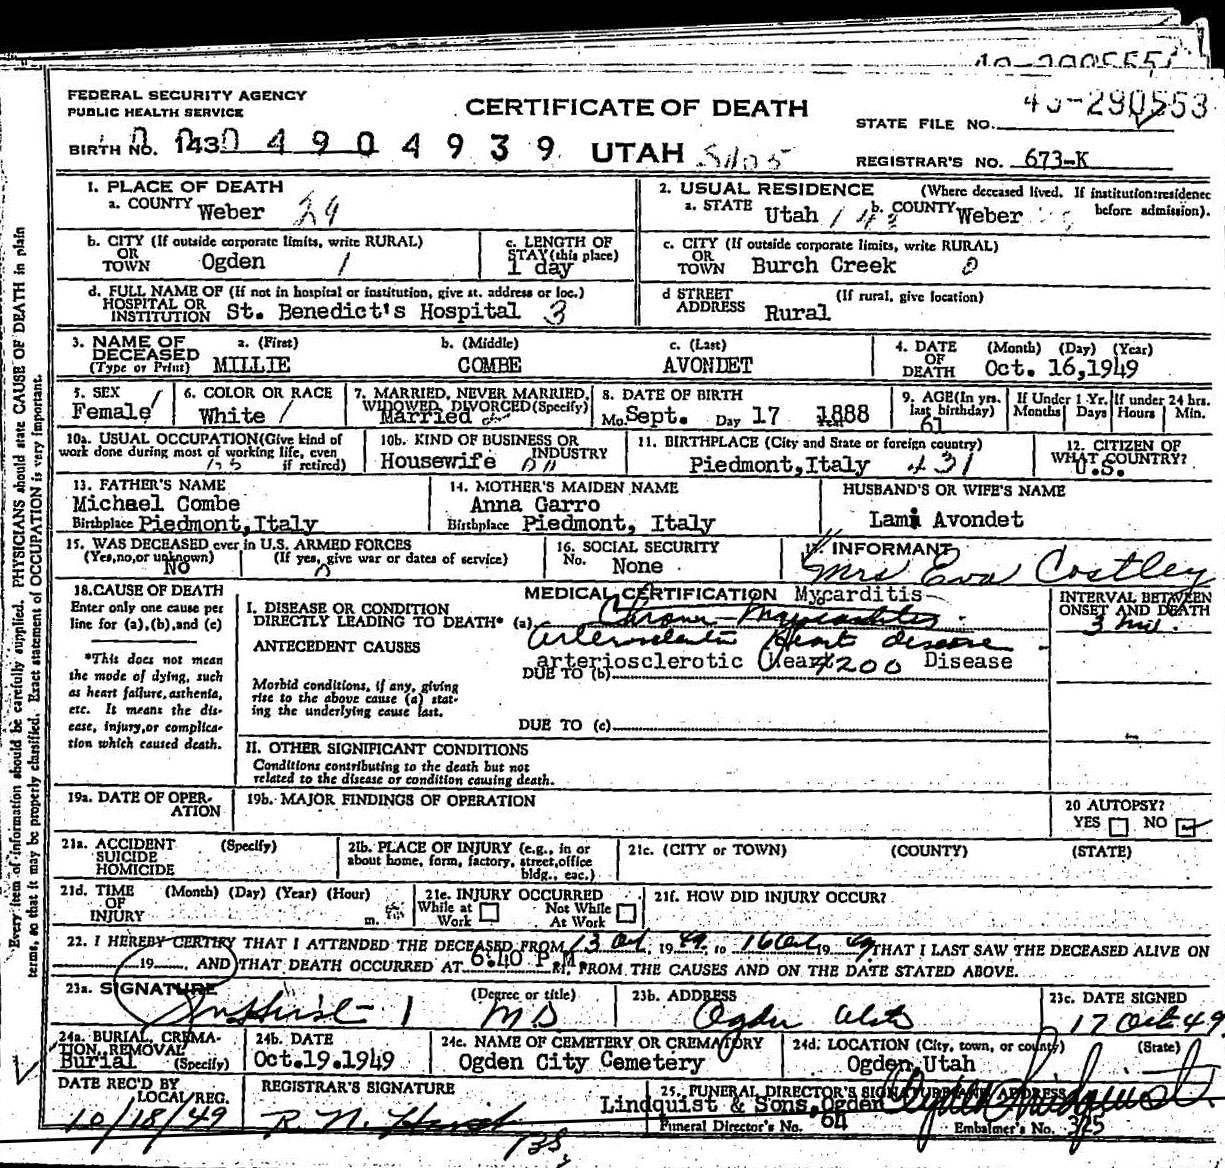 FEDERAL SECURITY AGENCY
PUBLIC HEALTH SERVICE
CERTIFICATE OF DEATH
STATE FILE NO. 49-290553
BIRTH NO. 1430 4904939 UTAH
REGISTRAR'S NO. 673-K
1. PLACE OF DEATH
a. COUNTY Weber 29
2. USUAL RESIDENCE (Where deceased lived. If institution:residence before admission).
a. STATE Utah b. COUNTY Weber
b. CITY (If outside corporate limits, write RURAL)
OR TOWN Ogden 1
c. LENGTH OF STAY (this place)
1 day
c. CITY (If outside corporate limits, write RURAL)
OR TOWN Burch Creek 0
d. FULL NAME OF (If not in hospital or institution, give st. address or loc.)
HOSPITAL OR INSTITUTION St. Benedict's Hospital 3
d STREET ADDRESS (If rural, give location)
Rural
3. NAME OF DECEASED (Type or Print)
a. (First) b. (Middle) c. (Last)
MILLIE COMBE AVONDET
4. DATE OF DEATH (Month) (Day) (Year)
Oct. 16,1949
5. SEX
Female
6. COLOR OR RACE
White
7. MARRIED, NEVER MARRIED, WIDOWED, DIVORCED (Specify)
Married
8. DATE OF BIRTH
Mo. Sept. Day 17 Year 1888
9. AGE (In yrs. last birthday)
61
If Under 1 Yr. Months Days
If under 24 hrs. Hours Min.
10a. USUAL OCCUPATION (Give kind of work done during most of working life, even if retired)
10b. KIND OF BUSINESS OR INDUSTRY
Housewife
11. BIRTHPLACE (City and State or foreign country)
Piedmont,Italy 431
12. CITIZEN OF WHAT COUNTRY?
U.S.
13. FATHER'S NAME
Michael Combe
Birthplace Piedmont,Italy
14. MOTHER'S MAIDEN NAME
Anna Garro
Birthplace Piedmont, Italy
HUSBAND'S OR WIFE'S NAME
Lami Avondet
15. WAS DECEASED ever in U.S. ARMED FORCES
(Yes,no,or unknown) (If yes, give war or dates of service)
No
16. SOCIAL SECURITY No.
None
17. INFORMANT
Mrs Eva Costley
18. CAUSE OF DEATH
Enter only one cause per line for (a),(b),and (c)
*This does not mean the mode of dying, such as heart failure, asthenia, etc. It means the disease, injury,or complication which caused death.
MEDICAL CERTIFICATION Mycarditis
I. DISEASE OR CONDITION
DIRECTLY LEADING TO DEATH* (a) Chronic Myocarditis
ANTECEDENT CAUSES
arteriosclerotic Heart disease
arteriosclerotic Heart 4200 Disease
DUE TO (b)
Morbid conditions, if any, giving rise to the above cause (a) stating the underlying cause last.
DUE TO (c)
INTERVAL BETWEEN ONSET AND DEATH
3 mo.
II. OTHER SIGNIFICANT CONDITIONS
Conditions contributing to the death but not related to the disease or condition causing death.
19a. DATE OF OPERATION
19b. MAJOR FINDINGS OF OPERATION
20 AUTOPSY?
YES NO
21a. ACCIDENT SUICIDE HOMICIDE (Specify)
21b. PLACE OF INJURY (e.g., in or about home, form, factory, street,office bldg., eac.)
21c. (CITY or TOWN) (COUNTY) (STATE)
21d. TIME OF INJURY (Month) (Day) (Year) (Hour) m.
21e. INJURY OCCURRED
While at Work Not While At Work
21f. HOW DID INJURY OCCUR?
22. I HEREBY CERTIFY THAT I ATTENDED THE DECEASED FROM 13 Oct, 1949, to 16 Oct 1949, THAT I LAST SAW THE DECEASED ALIVE ON
19 , AND THAT DEATH OCCURRED AT 6:40 P.M M. FROM THE CAUSES AND ON THE DATE STATED ABOVE.
23a. SIGNATURE (Degree or title)
MD
23b. ADDRESS
Ogden Utah
23c. DATE SIGNED
17 Oct 49
24a. BURIAL, CREMATION, REMOVAL (Specify)
Burial
24b. DATE
Oct.19.1949
24c. NAME OF CEMETERY OR CREMATORY
Ogden City Cemetery
24d. LOCATION (City, town, or county) (State)
Ogden,Utah
DATE REC'D BY LOCAL REG.
10/18/49
REGISTRAR'S SIGNATURE
25. FUNERAL DIRECTOR'S SIGNATURE AND ADDRESS
Lindquist & Sons,Ogden
Funeral Director's No. 64 Embalmer's No. 325
Every item of information should be carefully supplied. PHYSICIANS should state CAUSE OF DEATH in plain
terms, so that it may be properly classified. Exact statement of OCCUPATION is very important.